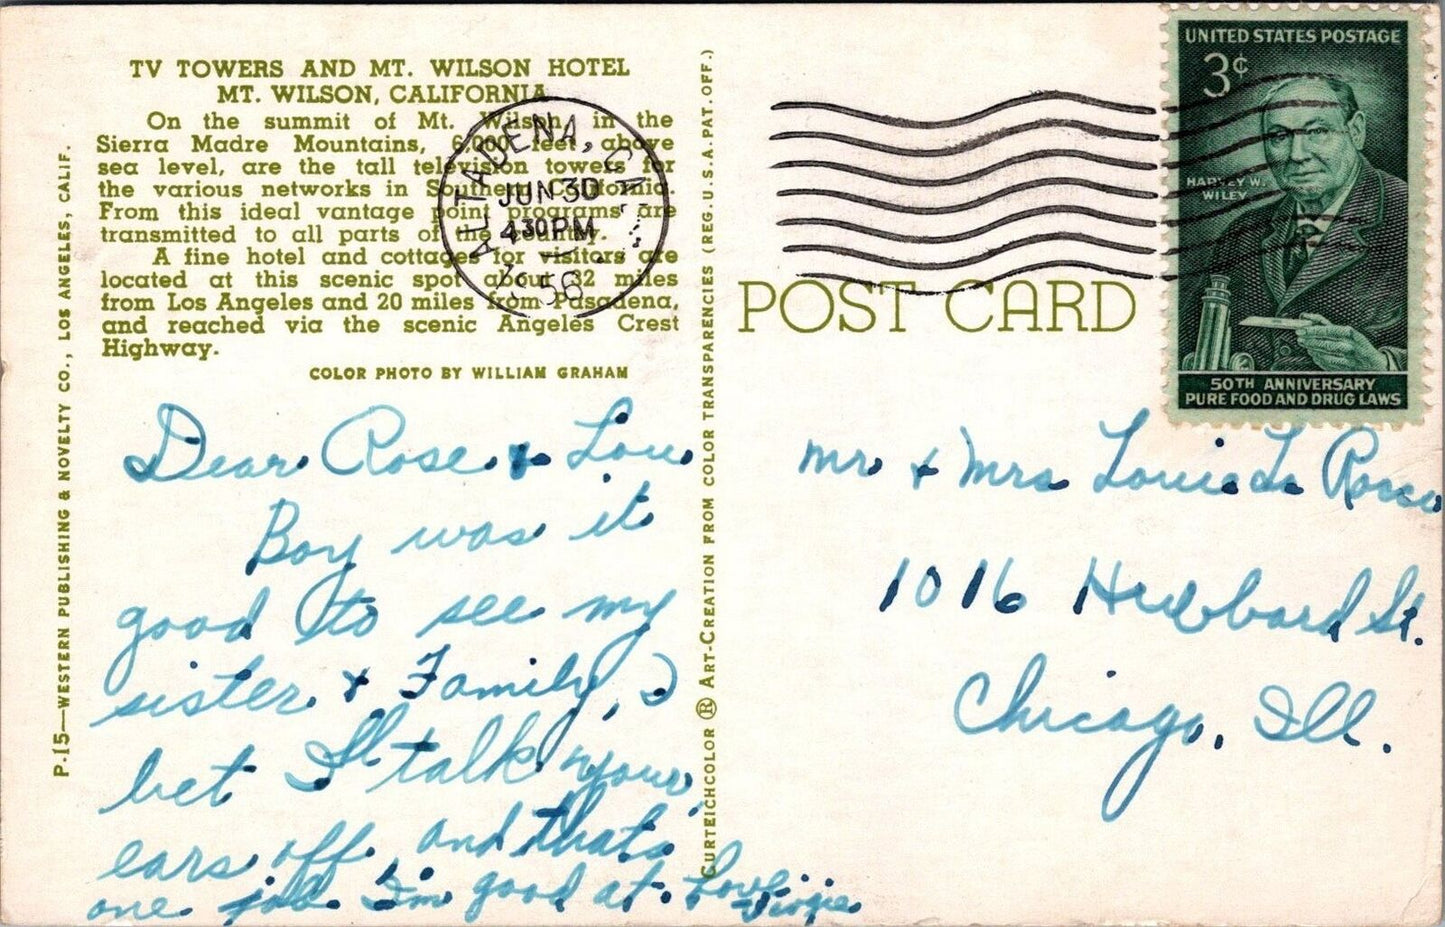 TV TOWERS AND MT. WILSON HOTEL
MT. WILSON, CALIFORNIA
On the summit of Mt. Wilson, in the
Sierra Madre Mountains, 6,000 feet above
sea level, are the tall television towers for
the various networks in Southern California.
From this ideal vantage point programs are
transmitted to all parts of the country.
A fine hotel and cottages for visitors are
located at this scenic spot about 32 miles
from Los Angeles and 20 miles from Pasadena,
and reached via the scenic Angeles Crest
Highway.
COLOR PHOTO BY WILLIAM GRAHAM
P-15—WESTERN PUBLISHING & NOVELTY CO., LOS ANGELES, CALIF.
Dear Rose & Lou
Boy was it
good to see my
sister & Family, I
bet I'll talk your
ears off, and thats
one job I'm good at. Love
Virgie
CURTEICHCOLOR ® ART-CREATION FROM COLOR TRANSPARENCIES (REG. U.S.A. PAT. OFF.)
ALTADENA, CA
JUN 30
4 30 PM
1956
POST CARD
UNITED STATES POSTAGE
3¢
HARVEY W.
WILEY
50TH ANNIVERSARY
PURE FOOD AND DRUG LAWS
Mr & Mrs Louis La Rocco
1016 Hubbard St.
Chicago, Ill.